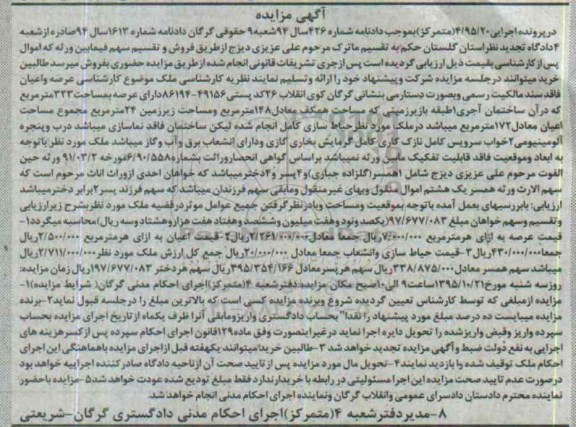 آگهی مزایده
در پرونده اجرایی ۴/۹۵/۲۰(متمرکز)بموجب دادنامه شماره ۴۲۶سال ۹۴شعبه ۹ حقوقی گرگان دادنامه شماره ۱۶۱۳سال ۹۴صادره از شعبه
۴دادگاه تجدید نظر استان گلستان حکم به تقسیم ماترک مرحوم علی عزیزی دیزج از طریق فروش و تقسیم سهم فیمابین ورثه که اموال
پس از کارشناسی بقیمت ذیل ارزیابی گردیده است پس از جری تشریفات قانونی انجام شده از طریق مزایده حضوری بفروش میرسد طالبین
خرید میتوانند در جلسه مزایده شرکت و پیشنهاد خود را ارائه و تسلیم نمایند نظریه کارشناسی ملک موضوع کارشناسی عرصه و اعیان
فاقد سند مالکیت رسمی و بصورت دستارمی بنشانی گرگان کوی انقلاب ۲۶کد پستی ۴۹۱۵۶-۸۶۱۹۴دارای عرصه بمساحت ۳۲۳مترمربع
که در آن ساختمان آجری ۱طبقه بازیرزمینی که مساحت همکف معادل ۱۴۸مترمربع و مساحت زیرزمین ۲۴مترمربع مجموع مساحت
اعیان معادل ۱۷۲مترمربع میباشد در ملک مورد نظر حیاط سازی کامل انجام شده لیکن ساختمان فاقد نماسازی میباشد درب و پنجره
آلومینیومی ۲خواب سرویس کامل نازک کاری کامل گرمایش بخاری گازی و دارای انشعاب برق و آب و گاز میباشد ملک مورد نظر باتوجه
به ابعاد و موقعیت فاقد قابلیت تفکیک مابین ورثه نمیباشد براساس گواهی انحصار وراثت بشماره ۴/۹۰/۵۵۸مورخه ۹۱/۰۳/۲ ورثه حین
الفوت مرحوم علی عزیزی دیزج شامل ۱همسر(گلزاده جباری)و ۲پسر و ۴دختر میباشد که خواهان احدی از وراث اناث مرحوم است که
سهم الارث ورثه همسر یک هشتم اموال منقول و بهای غیر منقول و مابقی سهم فرزندان میباشد که سهم فرزند پسر ۲برابر دختر میباشد
ارزیابی: بابررسیهای بعمل آمده باتوجه بموقعیت و مساحت و بادر نظر گرفتن جمیع عوامل موثر در قضیه ملک مورد نظر بشرح زیر ارزیابی
و تقسیم و سهم خواهان مبلغ ۱۹۷/۶۷۷/۰۸۳(یکصد و نود و هفت میلیون و ششصد و هفتاد هفت هزار و هشتاد و سه ریال)محاسبه میگردد۱-
قیمت عرصه به ازای هر مترمربع ۷/۰۰۰/۰۰۰ریال جمعا معادل ۲/۲۶۱/۰۰۰/۰۰۰ریال۲- قیمت اعیان به ازای هر مترمربع ۲/۵۰۰/۰۰۰ریال
جمعا ۴۳۰/۰۰۰/۰۰۰ریال۳-قیمت حیاط سازی و انشعاب جمعا معادل ۲۰/۰۰۰/۰۰۰ریال جمع کل ارزش ملک مورد نظر ۲/۷۱۱/۰۰۰/۰۰۰ریال
میباشد سهم همسر معادل ۳۳۸/۸۷۵/۰۰۰ریال سهم هر پسر معادل ۳۹۵/۳۵۴/۱۶۶ریال سهم هر دختر ۱۹۷/۶۷۷/۰۸۳ریال زمان مزایده:
روز سه شنبه مورخ ۱۳۹۵/۱۰/۲۱ساعت ۹ الی ۱۰صبح مکان مزایده دفتر شعبه ۴(متمرکز)اجرای احکام مدنی گرگان( شرایط مزایده)۱-
مزایده از مبلغی که توسط کارشناس تعیین گردیده شروع و برنده مزایده کسی است که بالاترین مبلغ را در جلسه قبول نماید۲-برنده
مزایده میبایست ده درصد مبلغ مورد پیشنهاد را نقدا"بحساب دادگستری واریز و مابقی آنرا ظرف یکماه از تاریخ اجرای مزایده بحساب
سپرده واریز و قبض واریز شده را تحویل دایره اجرا نماید در غیر اینصورت وفق ماده ۱۲۹قانون اجرای احکام سپرده پس از کسر هزینه های
اجرایی به نفع دولت ضبط و آگهی مزایده تجدید خواهد شد ۳-طالبین خرید میتوانند یکهفته قبل از اجرای مزایده باهماهنگی این اجرای
احکام ملک توقیف شده و بازدید نمایند۴-تحویل مال مورد مزایده پس از تایید صحت آن از ناحیه دادگاه صادر کننده اجراییه خواهد بود
در صورت عدم تایید صحت مزایده این اجرا مسئولیتی در رابطه با خریدار ندارد فقط مبلغ تودیع شده عودت خواهد شد۵-مزایده باحضور
نماینده محترم دادستان دادسرای عمومی و انقلاب گرگان و نماینده اجرای احکام مدنی انجام خواهد شد.
۸-مدیر دفتر شعبه ۴(متمرکز)اجرای احکام مدنی دادگستری گرگان-شریعتی